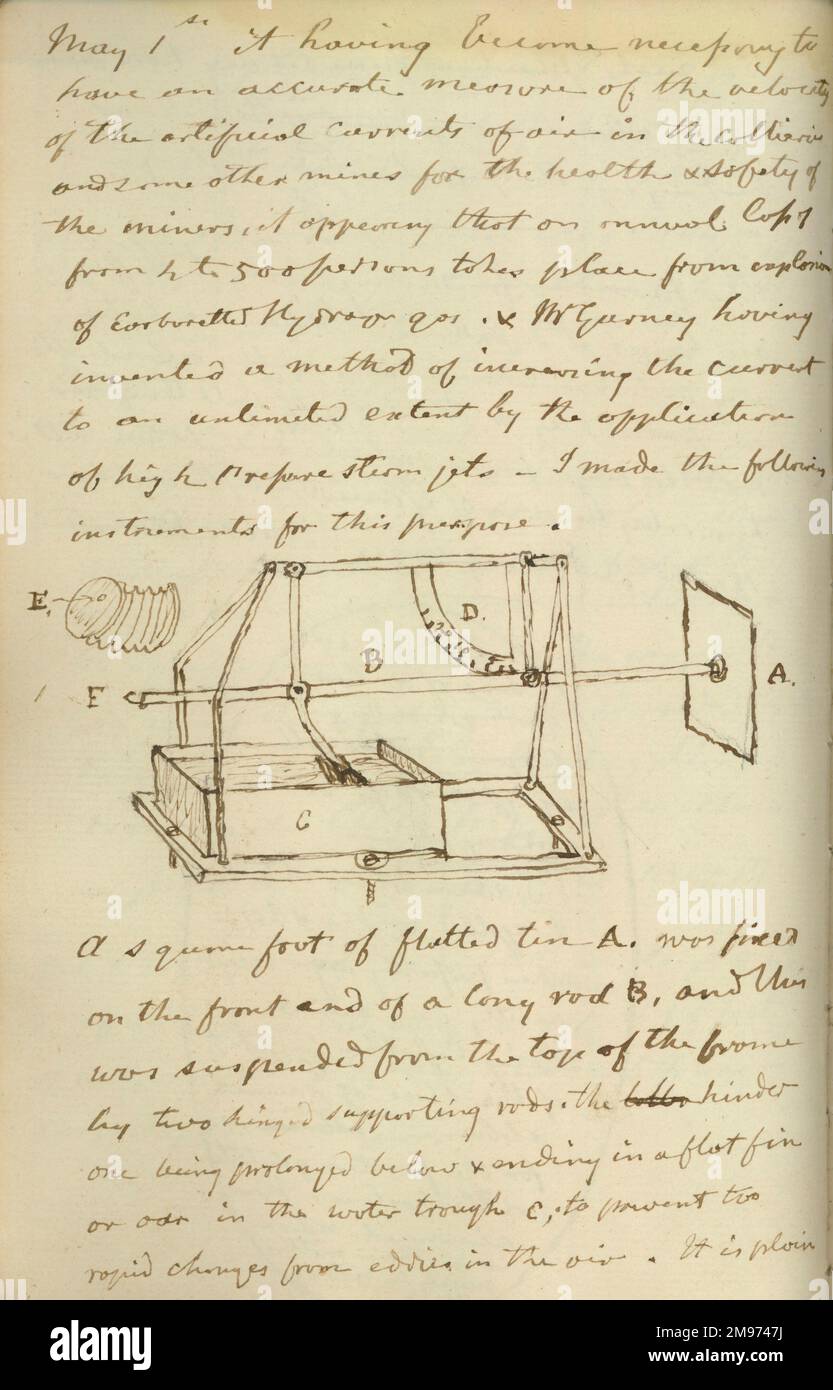 May 1st it having become necessary to
have an accurate measure of the velocity
of the artificial currents of air in the collieries
and some other mines for the health & safety of
the miners, it appearing that an annual loss of
from 4 to 500 persons takes place from explosion
of Carboretted Hydrogen gas. & Mr Gurney having
invented a method of increasing the current
to an unlimited extent by the application
of high pressure steam jets - I made the following
instruments for this purpose.
E.
D.
B
A.
F
C
A square foot of flatted tin A. was fixed
on the front end of a long rod B, and this
was suspended from the top of the frame
by two hinged supporting rods. the hinder
one being prolonged below & ending in a flat fin
or oar in the water trough C, to prevent too
rapid changes from eddies in the air. It is plain
alamy
Image ID: 2M9747J
www.alamy.com